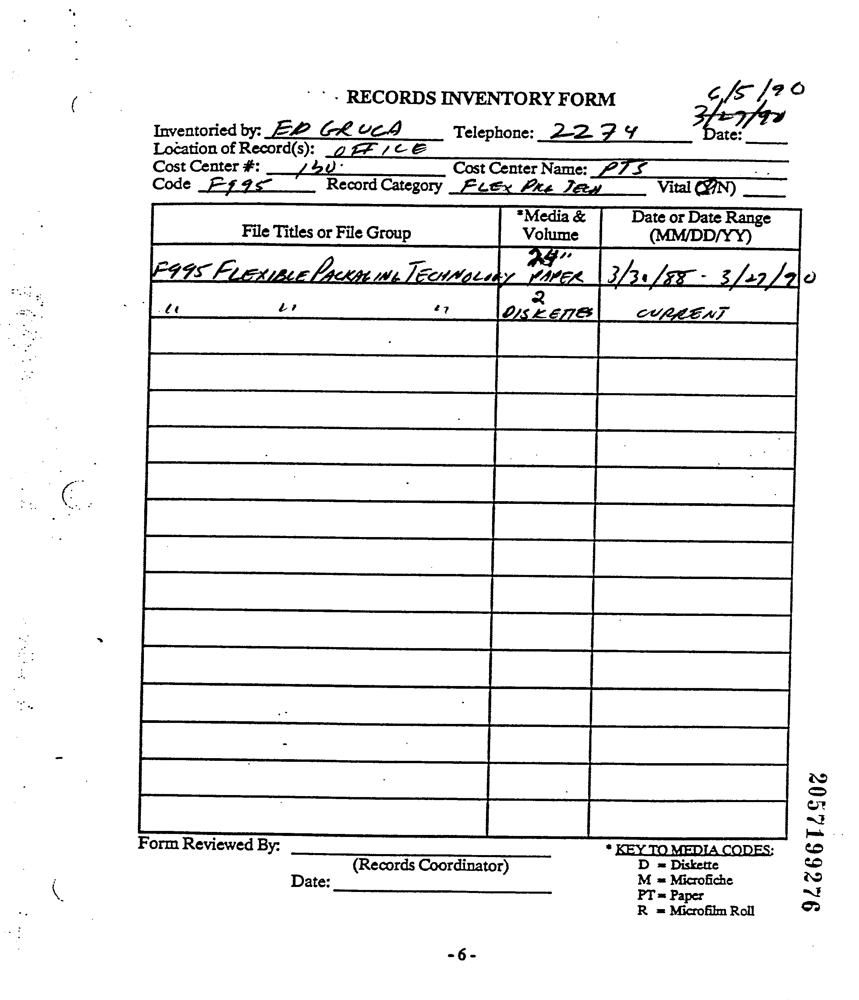 RECORDS INVENTORY FORM
6/5/90
3/27/90
Inventoried by: ED GRUCA Telephone: 2274 Date:
Location of Record(s): OFFICE
Cost Center #: 150 Cost Center Name: PTS
Code F995 Record Category FLEX PKG TECH Vital (Y/N)
File Titles or File Group *Media & Volume Date or Date Range (MM/DD/YY)
F995 FLEXIBLE PACKAGING TECHNOLOGY 24" PAPER 3/30/88 - 3/27/90
" " " 2 DISKETTES CURRENT
Form Reviewed By:
(Records Coordinator)
Date:
* KEY TO MEDIA CODES:
D = Diskette
M = Microfiche
PT = Paper
R = Microfilm Roll
2057199276
- 6 -